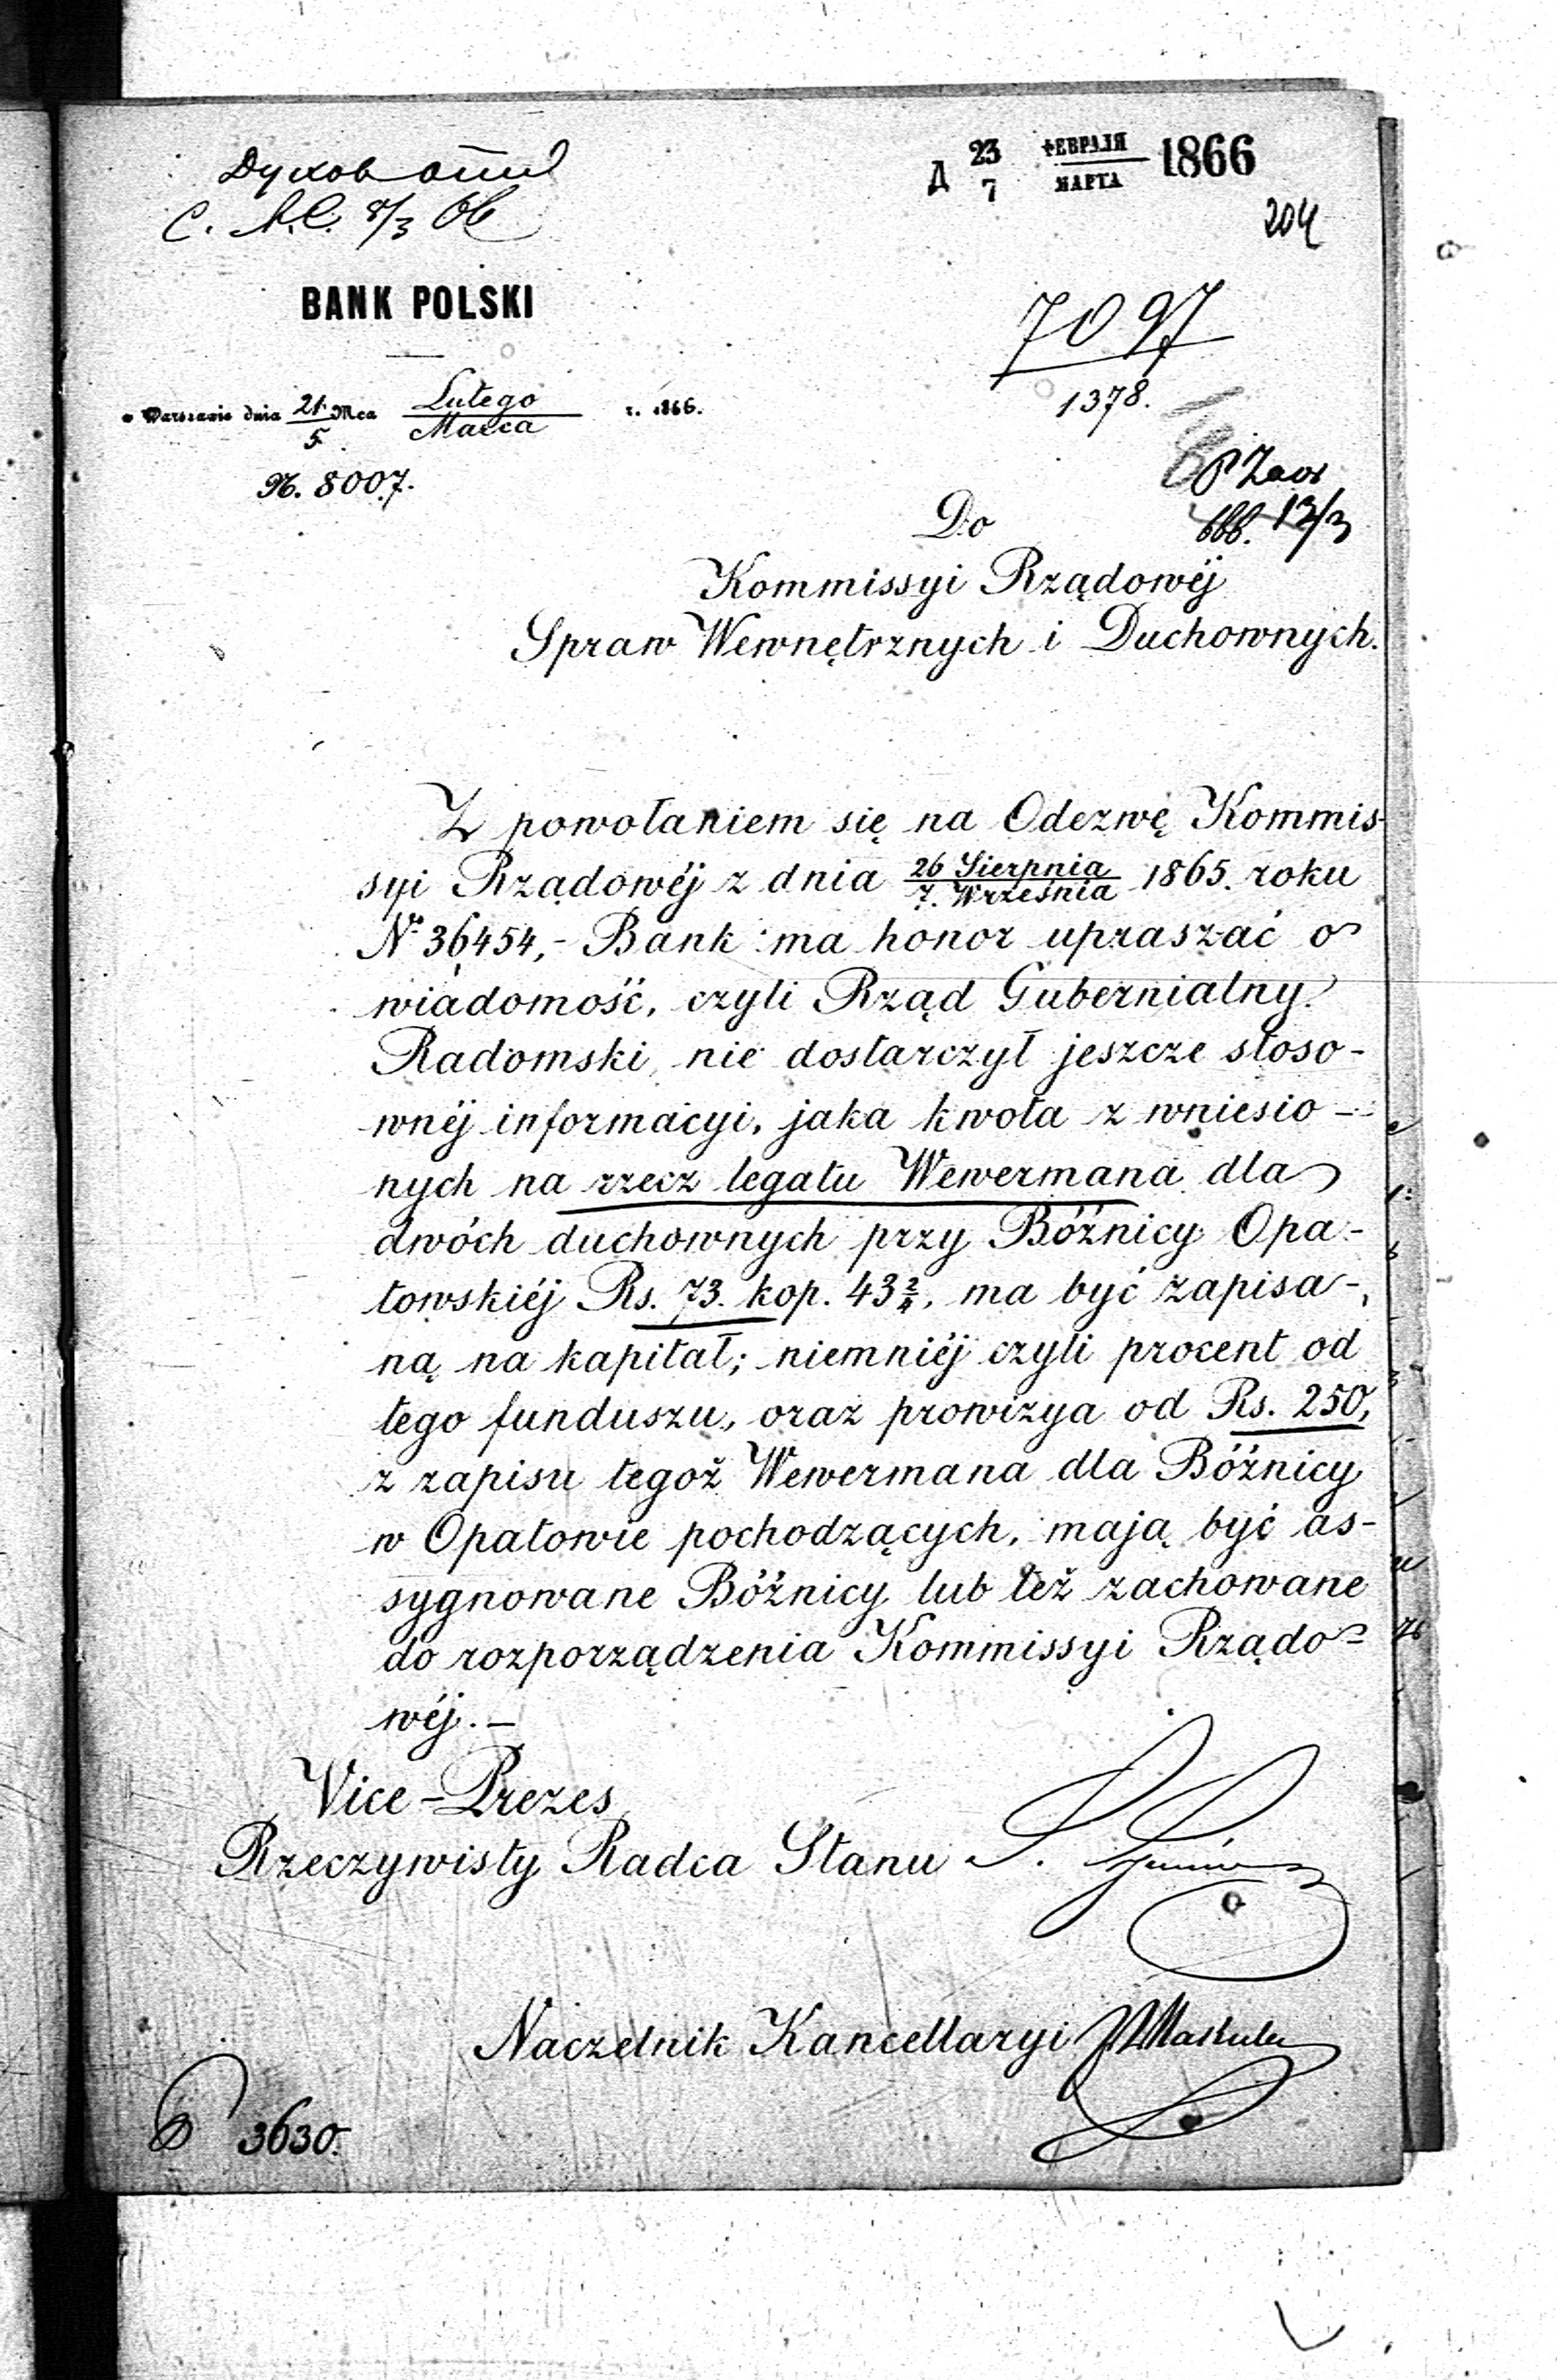 Духов отд
Д 23/7 ФЕВРАЛЯ/МАРТА 1866
204
BANK POLSKI
7097
1378.
w Warszawie dnia 21/5 Mca Lutego/Marca r. 1866.
N. 8007.
13/3
Do
Kommissyi Rządowéj
Spraw Wewnętrznych i Duchownych.
Z powołaniem się na Odezwę Kommis-
syi Rządowéj z dnia 26 Sierpnia/7. Września 1865. roku
No 36454,- Bank ma honor upraszać o
wiadomość, czyli Rząd Gubernialny
Radomski, nie dostarczył jeszcze stoso-
wnéj informacyi, jaka kwota z wniesio-
nych na rzecz legatu Wewermana dla
dwóch duchownych przy Bóżnicy Opa-
towskiéj Rs. 73. kop. 43 2/4, ma być zapisa-
ną na kapitał; niemniéj czyli procent od
tego funduszu, oraz prowizya od Rs. 250,
z zapisu tegoż Wewermana dla Bóżnicy
w Opatowie pochodzących, mają być as-
sygnowane Bóżnicy lub też zachowane
do rozporządzenia Kommissyi Rządo-
wéj.-
Vice-Prezes
Rzeczywisty Radca Stanu
Naczelnik Kancellaryi
3630.